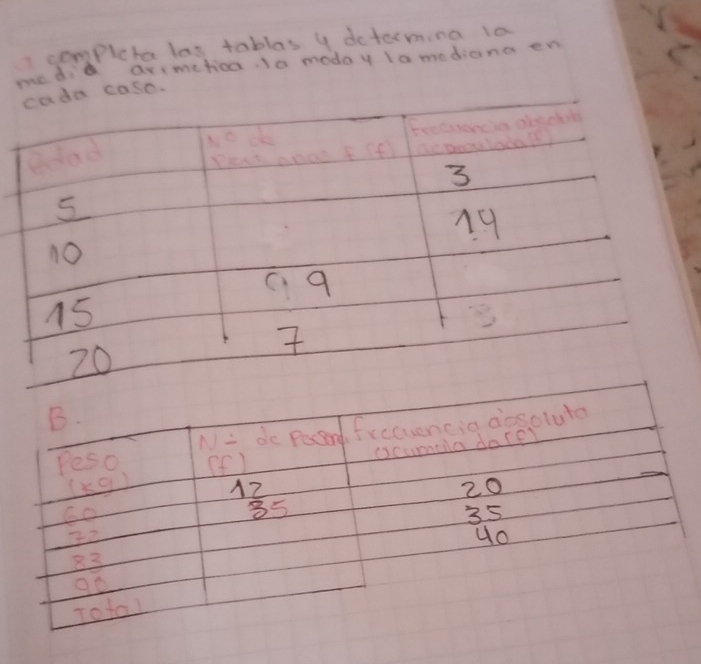 completa las tablas y determina la
media arimetica la moda y la mediana en
cada caso.
Edad Nº de f (f) Frecuencia absoluta
3
5
14
10
9
15
7
20
B.
Peso N= de frecuencia absoluta
(kg) (f) acumulada (f)
60 12 20
35 35
83 40
90
Total